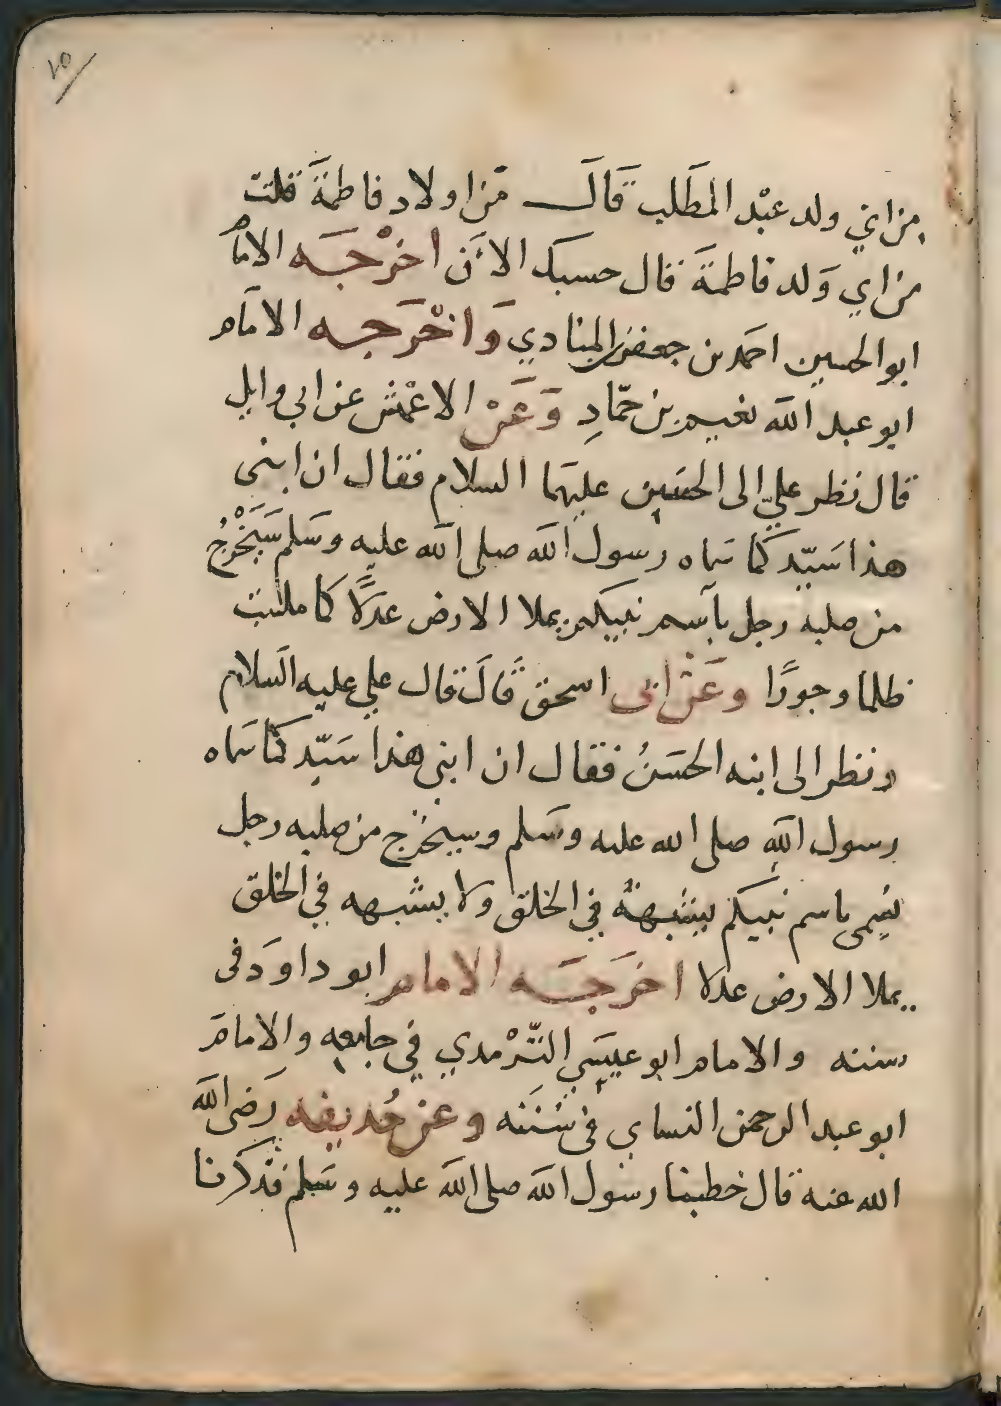 ١٥
من اي ولد عبْد المطَلب قَالَ مَن اولاد فاطمَةَ قلت
من اي وَلد فاطمَةَ قال حسبك الاَن اخرْجَه الامامُ
ابو الحسين احمَد بن جعفر المنادي وَاخْرَجه الامَام
ابو عبد الله نعيم بن حمّادِ وَعَنْ الاعْمش عن ابي وايل
قال نظر عليّ الى الحسَين عليهمَا السلام فقال ان ابنى
هذا سَيّد كمَا سَماه رسول الله صلى الله عليه وسَلم سَيَخْرجُ
من صلبه رجل باسم نبيكم يملا الارض عدلًا كما ملئت
ظلما وجورًا وعَنْ ابى اسحق قَالَ قال علي عليه السَلام
ونظر الى ابنه الحسَنُ فقال ان ابنى هذا سَيّد كمَا سَماه
رسول الله صلى الله عليه وسَلم وسيخرج من صلبه رجل
يسمى باسم نبيكم يشبههُ في الخلق ولا يشبهه في الخلق
يملا الارض عدلا اخرَجَه الامام ابو داوَد فى
سننه والامام ابو عيسَي التّرْمدي في جامعه والامامَ
ابو عبد الرحمن النساي فى سُنَنه وعن حُديفه رَضى الله
الله عنه قال خطبنا رسول الله صلى الله عليه وسَلم فذكرنا